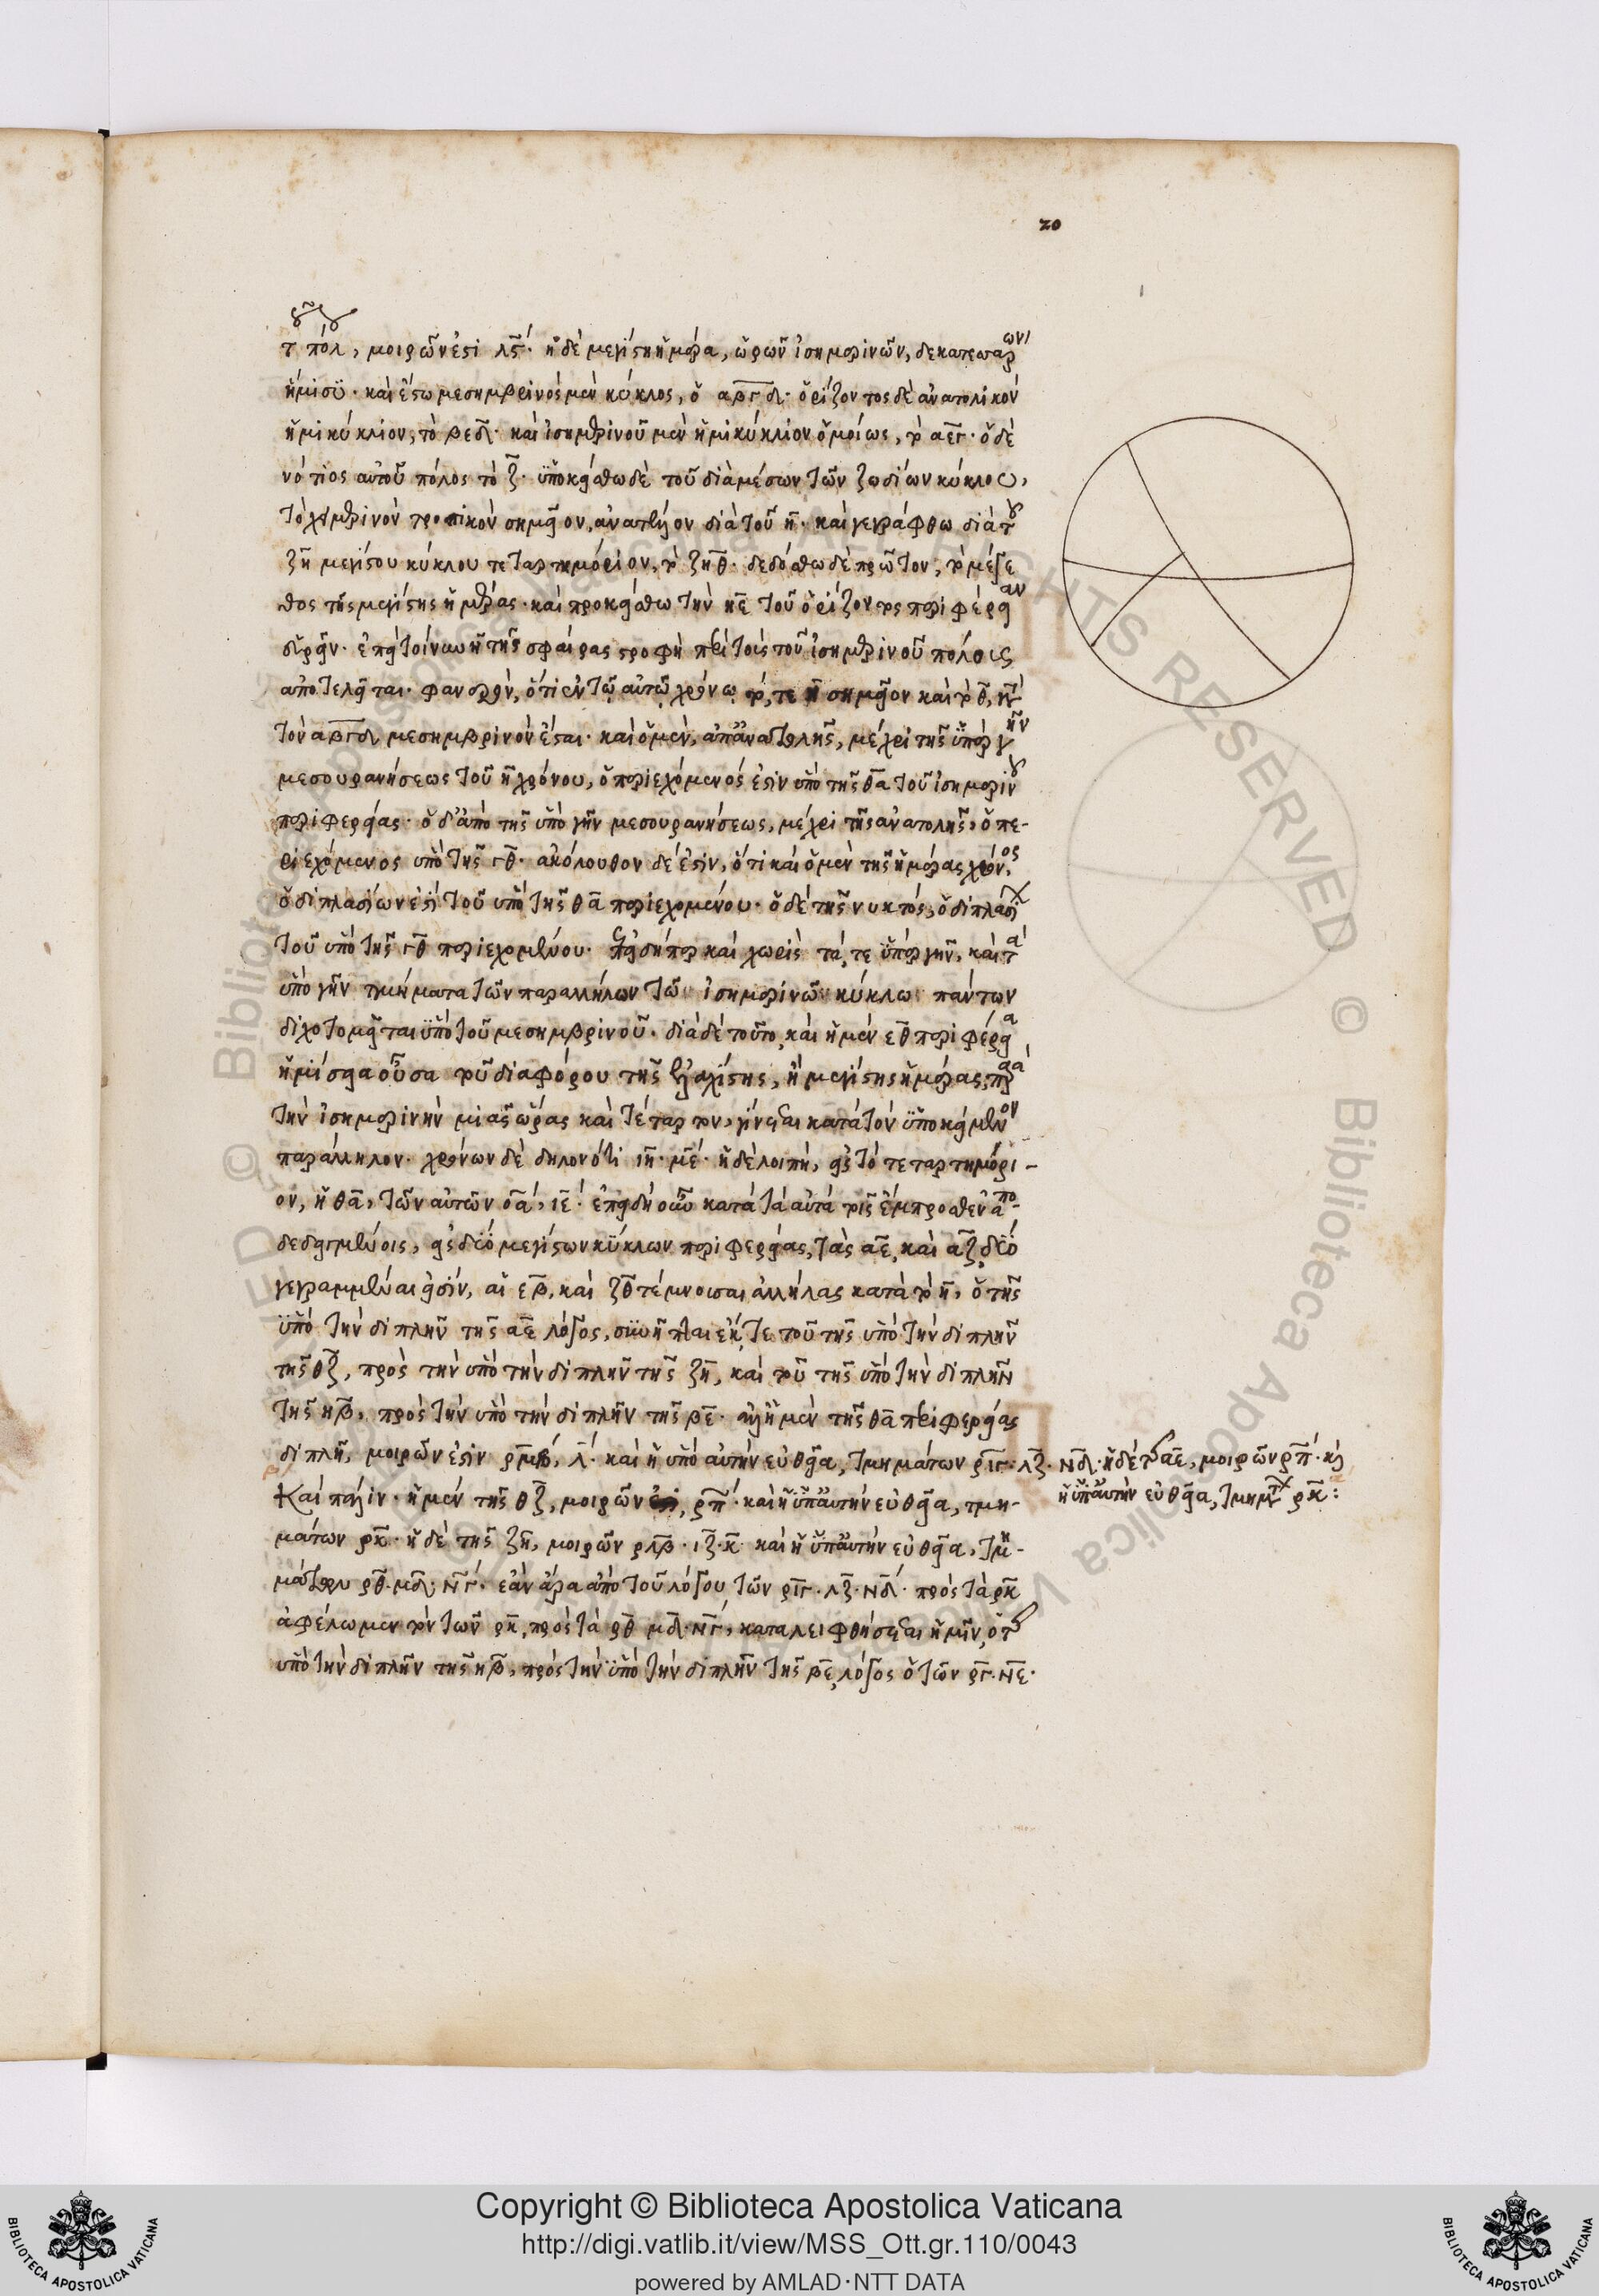 20
τοῦ πόλου, μοιρῶν ἐστι λϛ· ἡ δὲ μεγίστη ἡμέρα, ὡρῶν ἰσημερινῶν, δεκατεσσάρων
ἥμισυ· καὶ ἔστω μεσημβρινὸς μὲν κύκλος, ὁ αβγδ· ὁρίζοντος δὲ ἀνατολικὸν
ἡμικύκλιον, τὸ βεδ· καὶ ἰσημερινοῦ μὲν ἡμικύκλιον ὁμοίως, τὸ αεγ· ὁ δὲ
νότιος αὐτοῦ πόλος τὸ ζ· ὑποκείσθω δὲ τοῦ διὰ μέσων τῶν ζωδίων κύκλου,
τὸ χειμερινὸν τροπικὸν σημεῖον, ἀνατέλλον διὰ τοῦ η· καὶ γεγράφθω διὰ τοῦ
ζη μεγίστου κύκλου τεταρτημόριον, τὸ ζηθ· δεδόσθω δὲ πρῶτον, τὸ μέγε
θος τῆς μεγίστης ἡμέρας· καὶ προκείσθω τὴν ηε τοῦ ὁρίζοντος περιφέρειαν
εὑρεῖν· ἐπεὶ τοίνυν ἡ τῆς σφαίρας στροφὴ περὶ τοὺς τοῦ ἰσημερινοῦ πόλους
ἀποτελεῖται· φανερὸν, ὅτι ἐν τῷ αὐτῷ χρόνῳ τό, τε η σημεῖον καὶ τὸ θ, κατὰ
τὸν αβγδ μεσημβρινὸν ἔσται· καὶ ὁ μὲν, ἀπ' ἀνατολῆς, μέχρι τῆς ὑπὲρ γῆν
μεσουρανήσεως τοῦ η χρόνου, ὁ περιεχόμενός ἐστιν ὑπὸ τῆς θα τοῦ ἰσημερινοῦ
περιφερείας· ὁ δ' ἀπὸ τῆς ὑπὸ γῆν μεσουρανήσεως, μέχρι τῆς ἀνατολῆς, ὁ πε-
ριεχόμενος ὑπὸ τῆς γθ· ἀκόλουθον δέ ἐστιν, ὅτι καὶ ὁ μὲν τῆς ἡμέρας χρόνος,
ὁ διπλασίων ἐστὶ τοῦ ὑπὸ τῆς θα περιεχομένου· ὁ δὲ τῆς νυκτός, ὁ διπλασίων
τοῦ ὑπὸ τῆς γθ περιεχομένου· ἐπειδήπερ καὶ χωρὶς τά, τε ὑπὲρ γῆν, καὶ τὰ
ὑπὸ γῆν τμήματα τῶν παραλλήλων τῶν ἰσημερινῶν κύκλω πάντων
διχοτομεῖται ὑπὸ τοῦ μεσημβρινοῦ· διὰ δὲ τοῦτο, καὶ ἡ μὲν εθ περιφέρεια
ἡμίσεια οὖσα τοῦ διαφόρου τῆς ἐλαχίστης, ἢ μεγίστης ἡμέρας, παρὰ
τὴν ἰσημερινὴν μιᾶς ὥρας καὶ τέταρτον, γίνεται κατὰ τὸν ὑποκείμενον
παράλληλον· χρόνων δὲ δηλονότι ιη· με· ἡ δὲ λοιπὴ, εἰς τὸ τεταρτημόρι-
ον, ἡ θα, τῶν αὐτῶν οα, ιε· ἐπειδὴ οὖν κατὰ τὰ αὐτὰ τοῖς ἔμπροσθεν ἀπο-
δεδειγμένοις, εἰς δύο μεγίστων κύκλων περιφερείας, τὰς αε, καὶ αζ, δύο
γεγραμμέναι εἰσίν, αἱ εβ, καὶ ζθ τέμνουσαι ἀλλήλας κατὰ τὸ η, ὁ τῆς
ὑπὸ τὴν διπλῆν τῆς αε λόγος, συνῆπται ἐκ, τε τοῦ τῆς ὑπὸ τὴν διπλῆν
τῆς θζ, πρὸς τὴν ὑπὸ τὴν διπλῆν τῆς ζη, καὶ τοῦ τῆς ὑπὸ τὴν διπλῆν
τῆς ηβ, πρὸς τὴν ὑπὸ τὴν διπλῆν τῆς βε· ἀλλ' ἡ μὲν τῆς θα περιφερείας
διπλῆ, μοιρῶν ἐστιν ρμβ, λ· καὶ ἡ ὑπὸ αὐτὴν εὐθεῖα, τμημάτων ριγ· λζ· νδ· ἡ δὲ τῆς αε, μοιρῶν ρπ· καὶ
ἡ ὑπ' αὐτὴν εὐθεῖα, τμημάτων ρκ:
Καὶ πάλιν· ἡ μὲν τῆς θζ, μοιρῶν ρπ· καὶ ἡ ὑπ' αὐτὴν εὐθεῖα, τμη-
μάτων ρκ· ἡ δὲ τῆς ζη, μοιρῶν ρλβ· ιζ· κ καὶ ἡ ὑπ' αὐτὴν εὐθεῖα, τμη-
μάτων ρθ· μδ· νγ· ἐὰν ἄρα ἀπὸ τοῦ λόγου τῶν ριγ· λζ· νδ· πρὸς τὰ ρκ
ἀφέλωμεν τὸν τῶν ρκ, πρὸς τὰ ρθ μδ· νγ, καταλειφθήσεται ἡμῖν, ὁ τῆς
ὑπὸ τὴν διπλῆν τῆς ηβ, πρὸς τὴν ὑπὸ τὴν διπλῆν τῆς βε, λόγος ὁ τῶν ργ· νε·
Copyright © Biblioteca Apostolica Vaticana
http://digi.vatlib.it/view/MSS_Ott.gr.110/0043
powered by AMLAD·NTT DATA